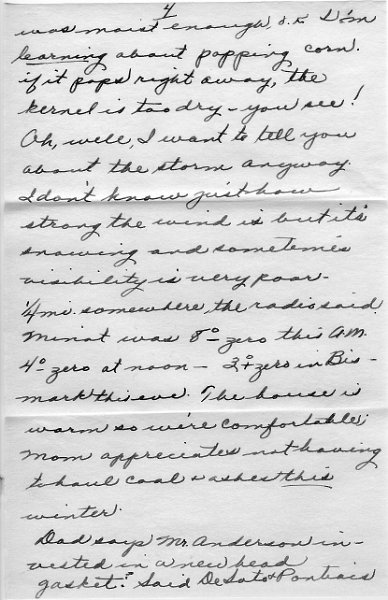 4
was moist enough, o.k. I'm
learning about popping corn.
if it pops right away, the
kernel is too dry - you see!
Oh, well, I want to tell you
about the storm anyway.
I don't know just how
strong the wind is but it's
snowing and sometimes
visibility is very poor -
1/4 mi. somewhere, the radio said.
Minot was 8° - zero this A.M.
4° zero at noon - 2°+ zero in Bis-
mark this eve. The house is
warm so we're comfortable;
Mom appreciates not having
to haul coal & ashes this
winter.
Dad says Mr. Anderson in-
vested in a new head
gasket? Said DeSoto & Pontiacs